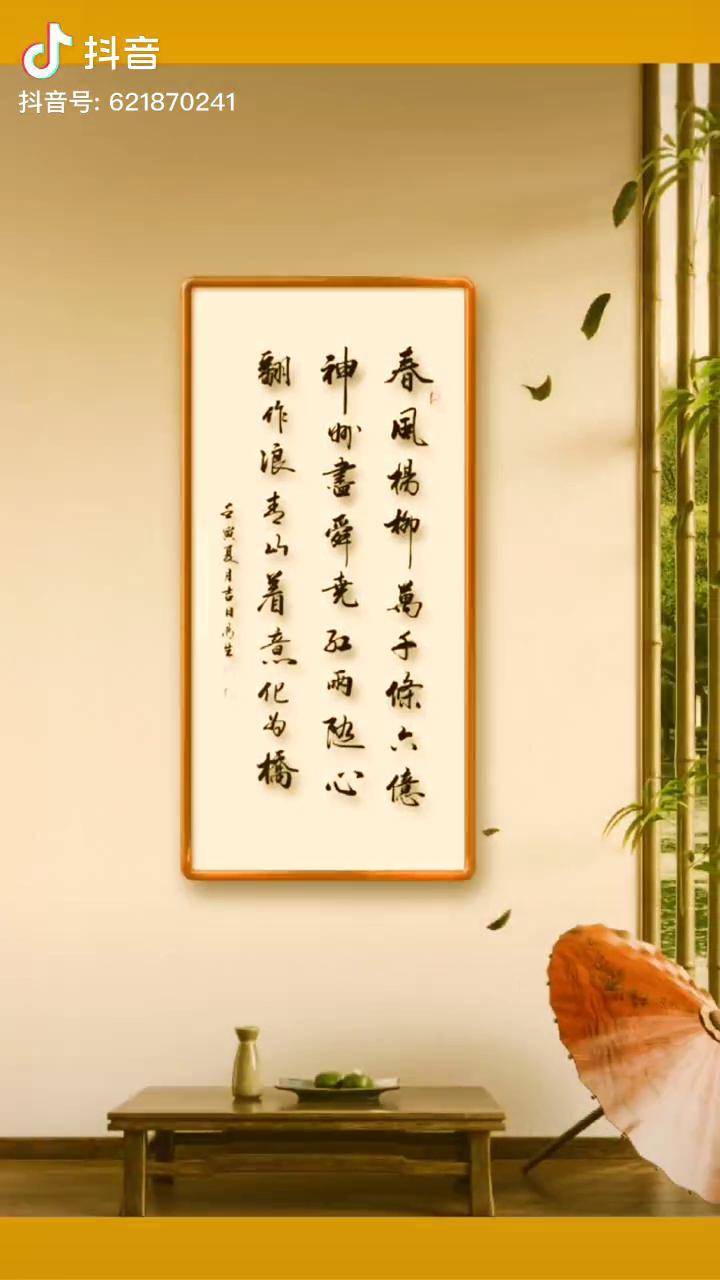 抖音
抖音号: 621870241
春風楊柳萬千條六億
神州盡舜堯紅雨隨心
翻作浪青山着意化為橋
壬寅夏月吉日